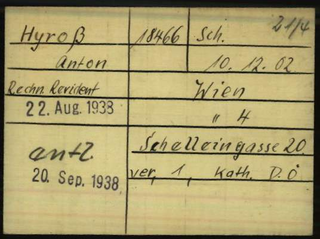 21/4
Hyroß 18466 Sch.
Anton 10. 12. 02
Rechn Revident Wien
22. Aug. 1938 " 4
Schelleingasse 20
entl.
20. Sep. 1938 ver, 1, Kath. D.Ö